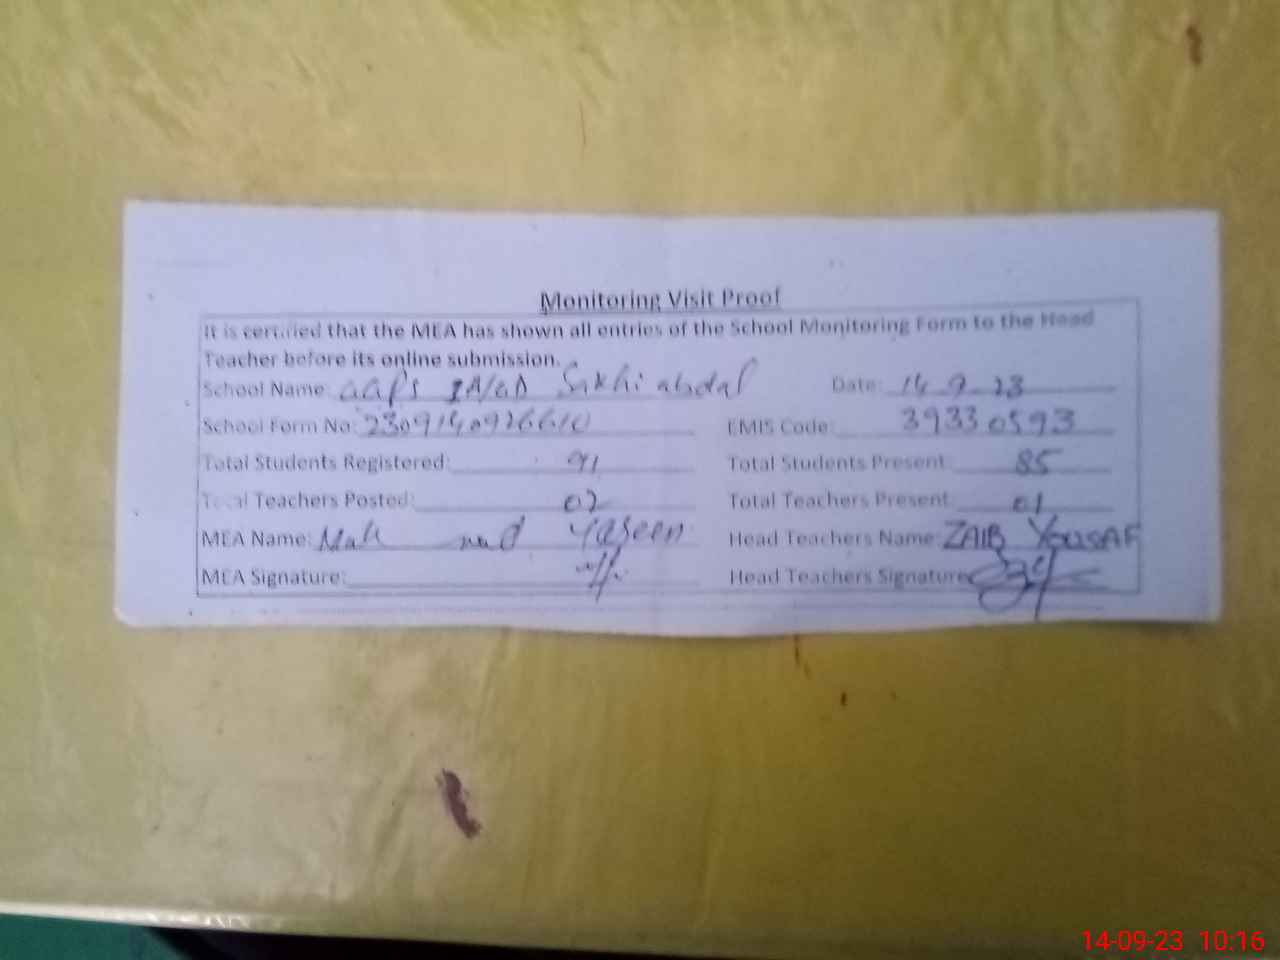 Monitoring Visit Proof
It is certified that the MEA has shown all entries of the School Monitoring Form to the Head
Teacher before its online submission.
School Name: Sakhi abdal Date: 14-9-23
School Form No: EMIS Code: 39330593
Total Students Registered: 91 Total Students Present: 85
Total Teachers Posted: 02 Total Teachers Present: 01
MEA Name: Yaseen Head Teachers Name: ZAIB YOUSAF
MEA Signature: Head Teachers Signature
14-09-23 10:16